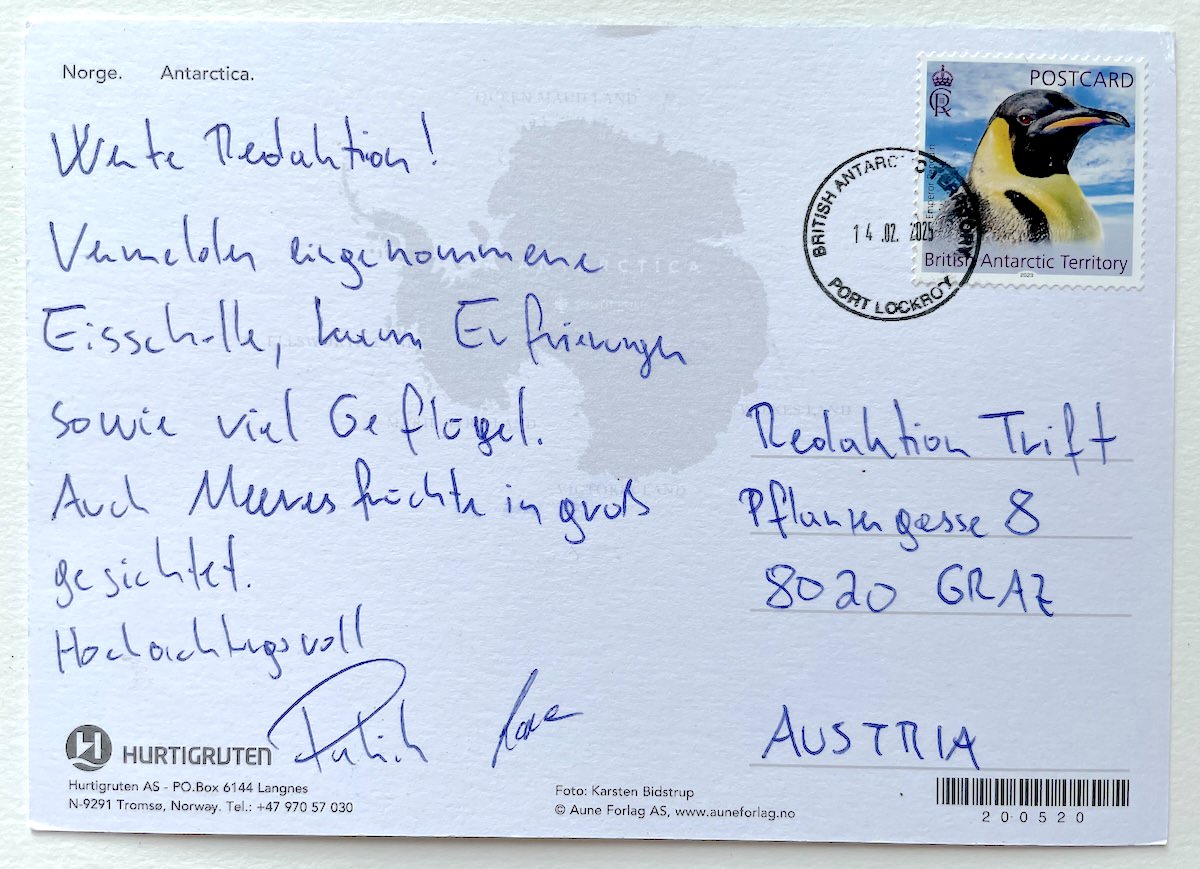 Norge. Antarctica.
POSTCARD
Emperor Penguin
British Antarctic Territory
2023
BRITISH ANTARCTIC TERRITORY
14.02.2025
PORT LOCKROY
QUEEN MAUD LAND
Antarctica
VICTORIA LAND
Werte Redaktion!
Vermelden eingenommene
Eisscholle, kaum Erfrierungen
sowie viel Geflügel.
Auch Meeresfrüchte in groß
gesichtet.
Hochachtungsvoll
Patrick
Redaktion Trift
Pflanzengasse 8
8020 GRAZ
AUSTRIA
HURTIGRUTEN
Hurtigruten AS - PO.Box 6144 Langnes
N-9291 Tromsø, Norway. Tel.: +47 970 57 030
Foto: Karsten Bidstrup
© Aune Forlag AS, www.auneforlag.no
200520